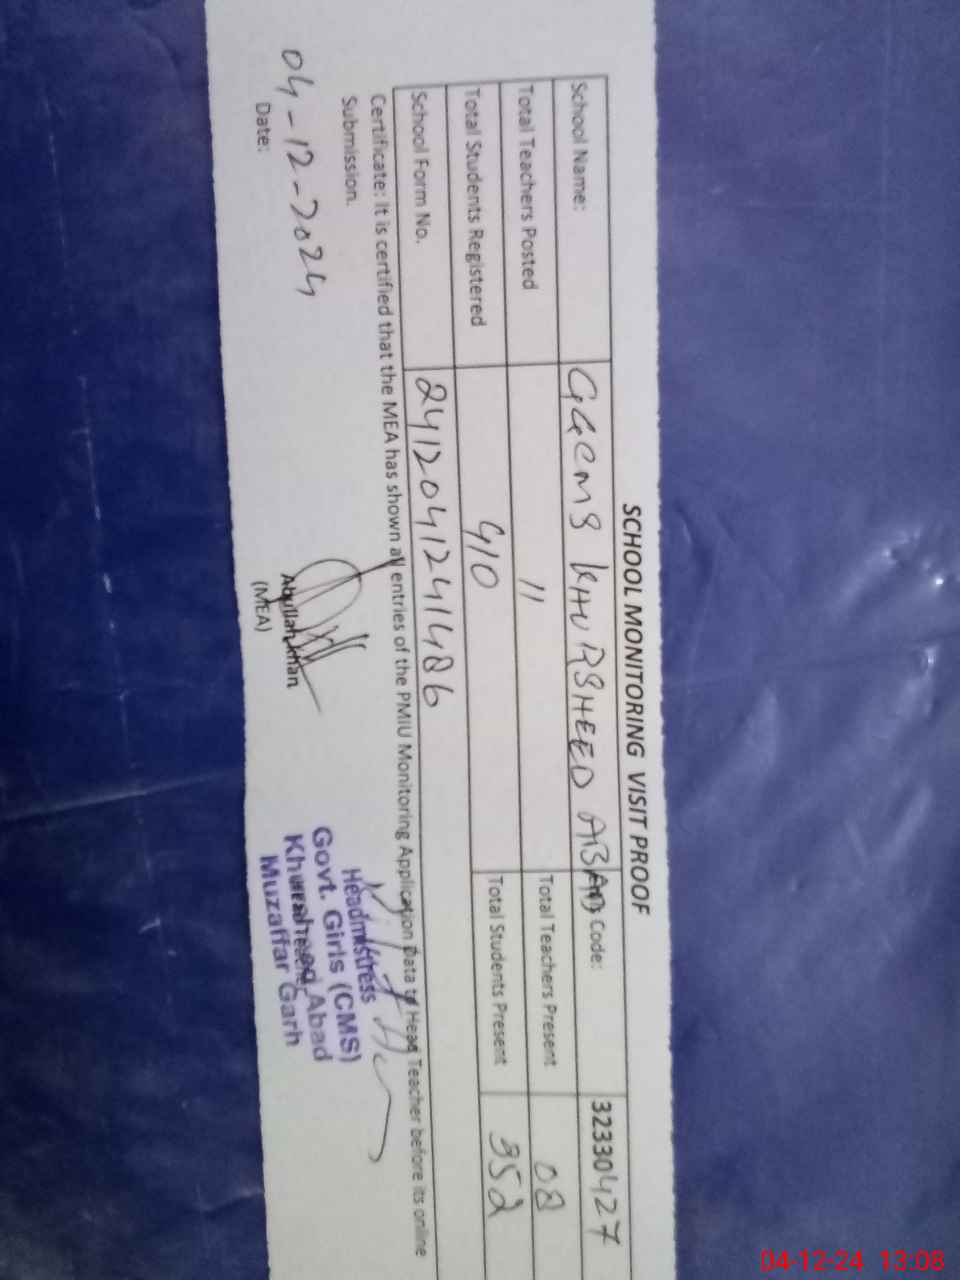 SCHOOL MONITORING VISIT PROOF
School Name: GGCMS KHURSHEED ABAD Code: 32330427
Total Teachers Posted 11 Total Teachers Present 08
Total Students Registered 410 Total Students Present 352
School Form No. 2412041241486
Certificate: It is certified that the MEA has shown all entries of the PMIU Monitoring Application Data to Head Teacher before its online
Submission.
04-12-2024
Date:
Abdullah Khan
(MEA)
Headmistress
Govt. Girls (CMS)
Khursheed Abad
Muzaffar Garh
04-12-24 13:08